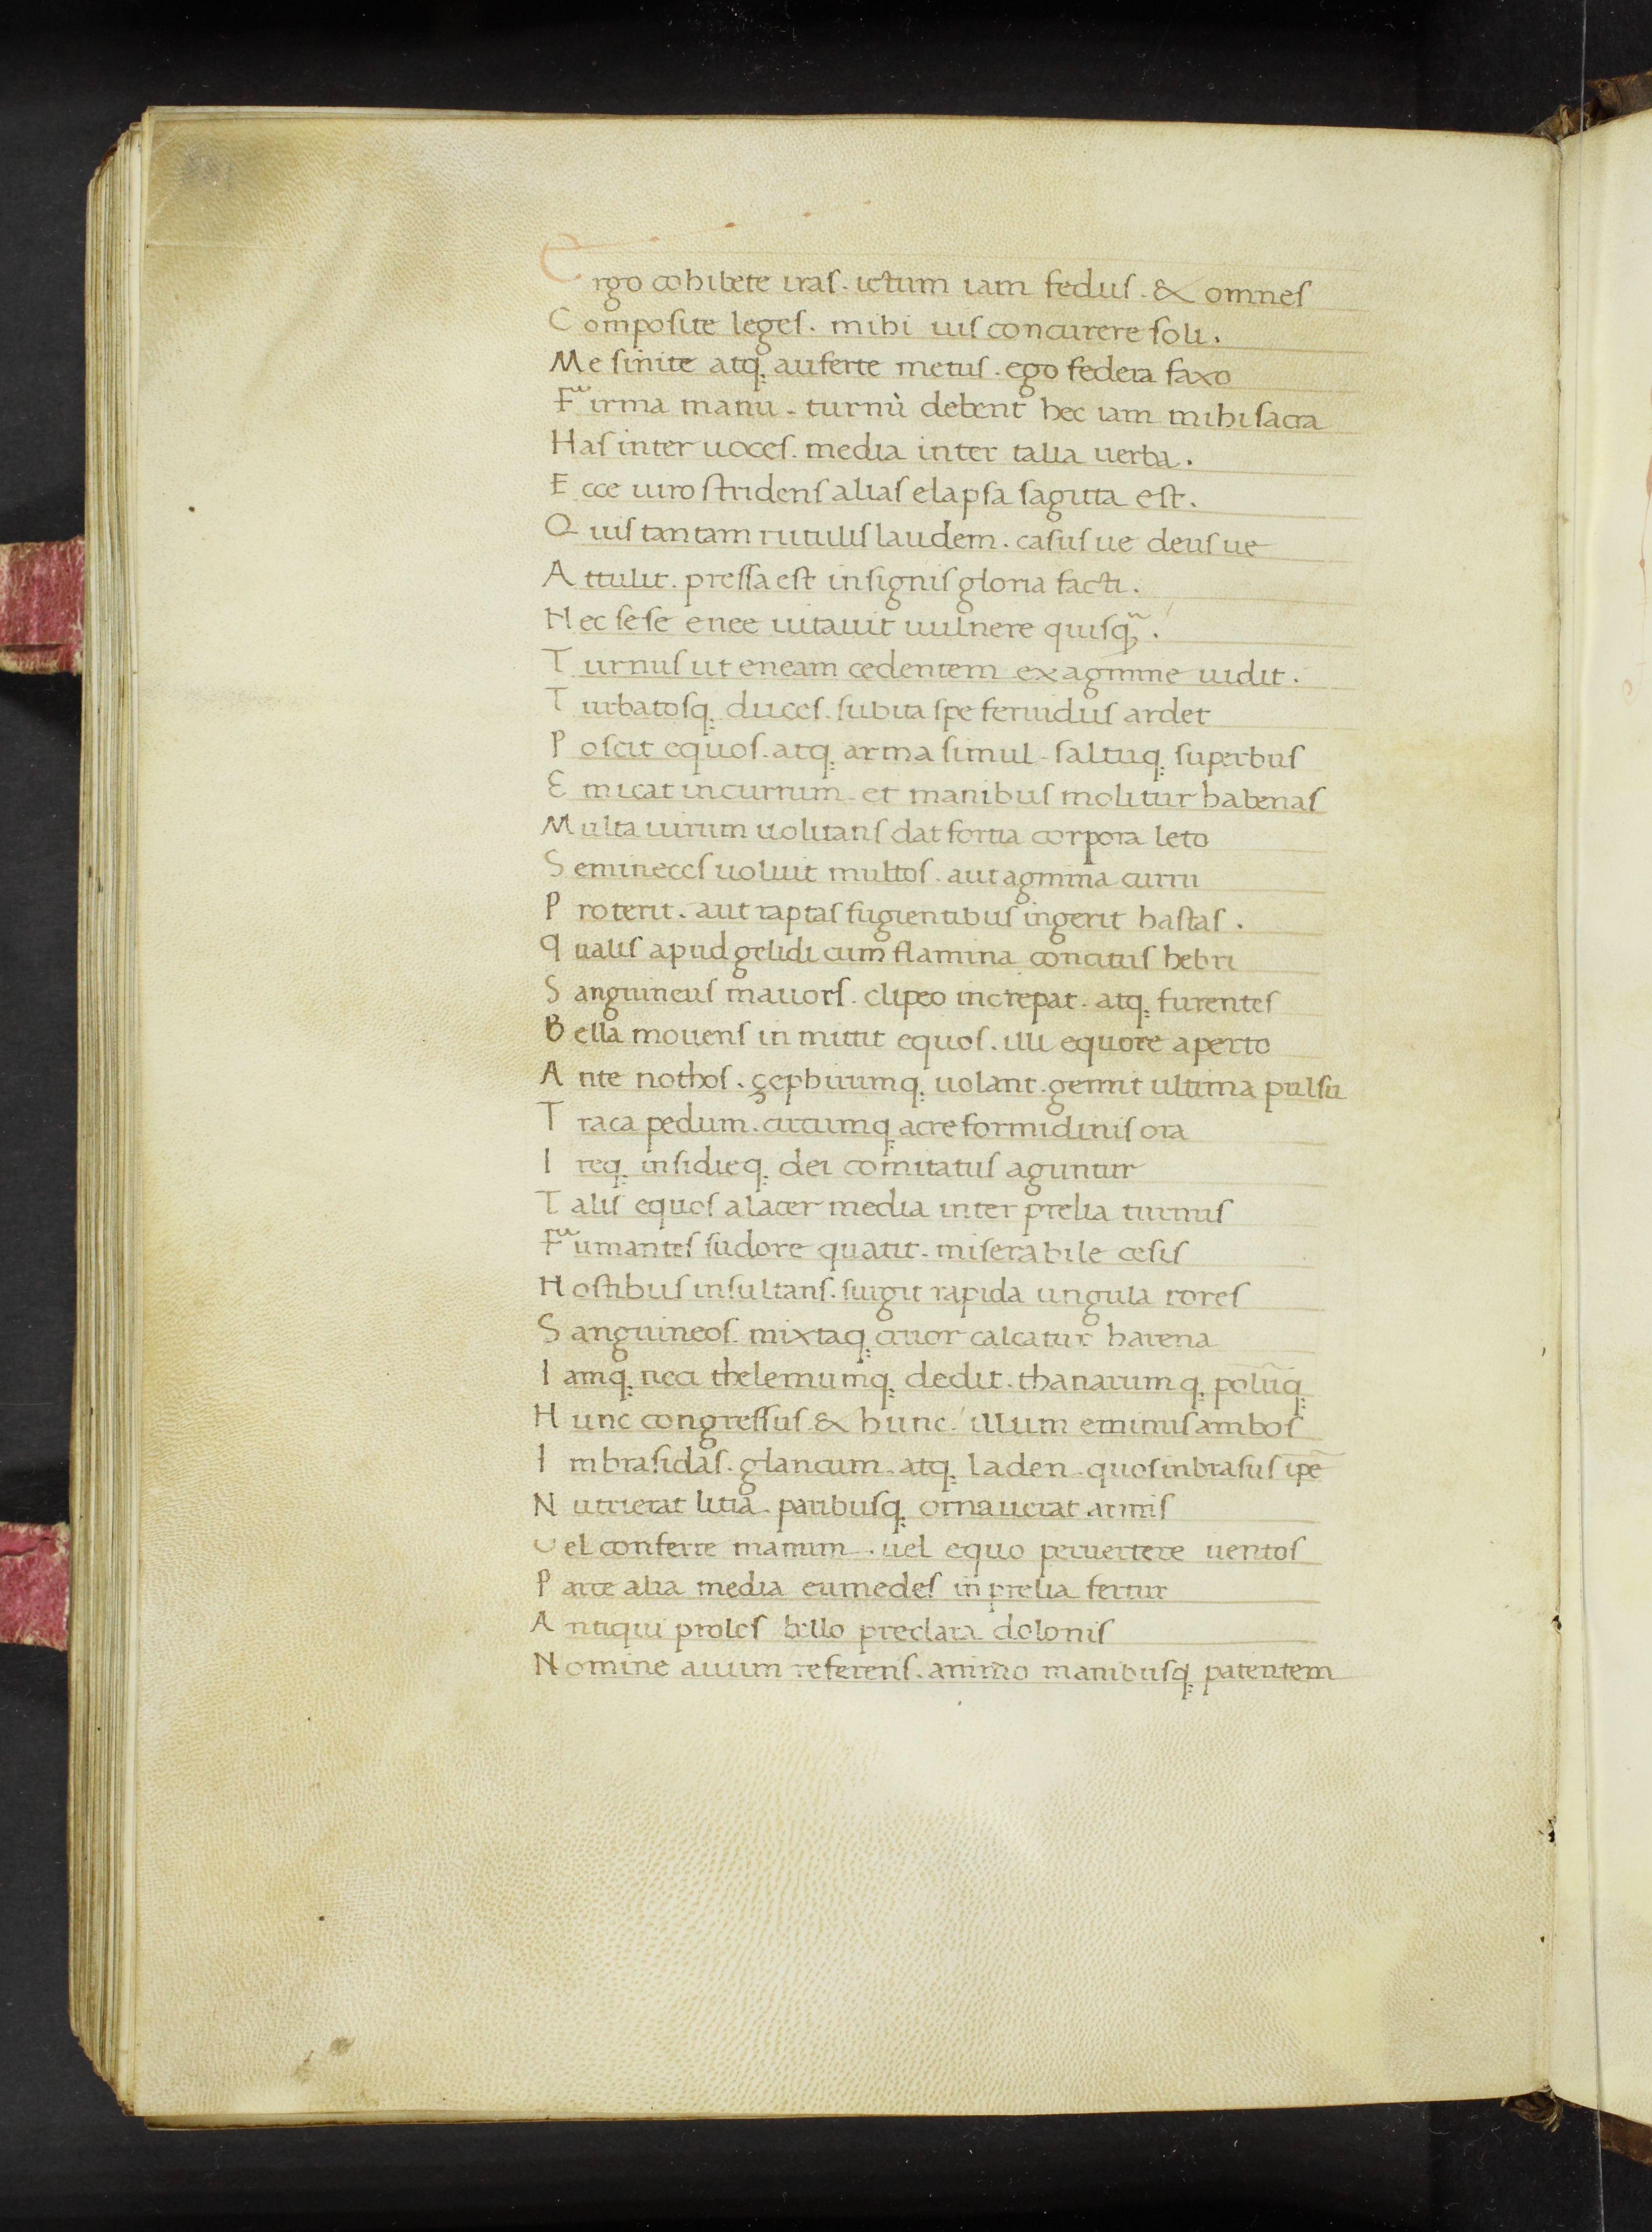 Ergo cohibete iras. ictum iam fedus. & omnes
Composite leges. mihi uis concurere soli.
Me sinite atq; auferte metus. ego federa faxo
Firma manu. turnù debent hec iam mihi sacra
Has inter uoces. media inter talia uerba.
Ecce uiro stridens alias elapsa sagitta est.
Quis tantam rutulis laudem. casus ue deus ue
Attulit. pressa est insignis gloria facti.
Nec sese enee uitauit uulnere quisq̃.
Turnus ut eneam cedentem ex agmine uidit.
Turbatosq; duces. subita spe feruidus ardet
Poscit equos. atq; arma simul. saltuq; superbus
Emicat in currum. et manibus molitur habenas
Multa uirum uolitans dat fortia corpora leto
Semineces uoluit multos. aut agmina curru
Proterit. aut raptas fugientibus ingerit hastas.
Qualis apud gelidi cum flamina concitus hebri
Sanguineus mauors. clipeo increpat. atq; furentes
Bella mouens in mittit equos. illi equore aperto
Ante nothos. çephirumq; uolant. gemit ultima pulsu
Traca pedum. circumq; acre formidinis ora
Ireq; insidieq; dei comitatus aguntur
Talis equos alacer media inter prelia turnus
Fumantes sudore quatit. miserabile cesis
Hostibus insultans. surgit rapida ungula rores
Sanguineos. mixtaq; cruor calcatur harena
Iamq; neci thelemumq; dedit. thanarumq; polũq;
Hunc congressus & hunc. illum eminus ambos
Imbrasidas. glancum. atq; laden. quos inbrasus ip̃e
Nutrierat litia. paribusq; ornauerat armis
Vel conferre manum. uel equo peruertere uentos
Parte alia media eumedes in prelia fertur
Antiqui proles bello preclara dolonis
Nomine auum referens. animo manibusq; patentem